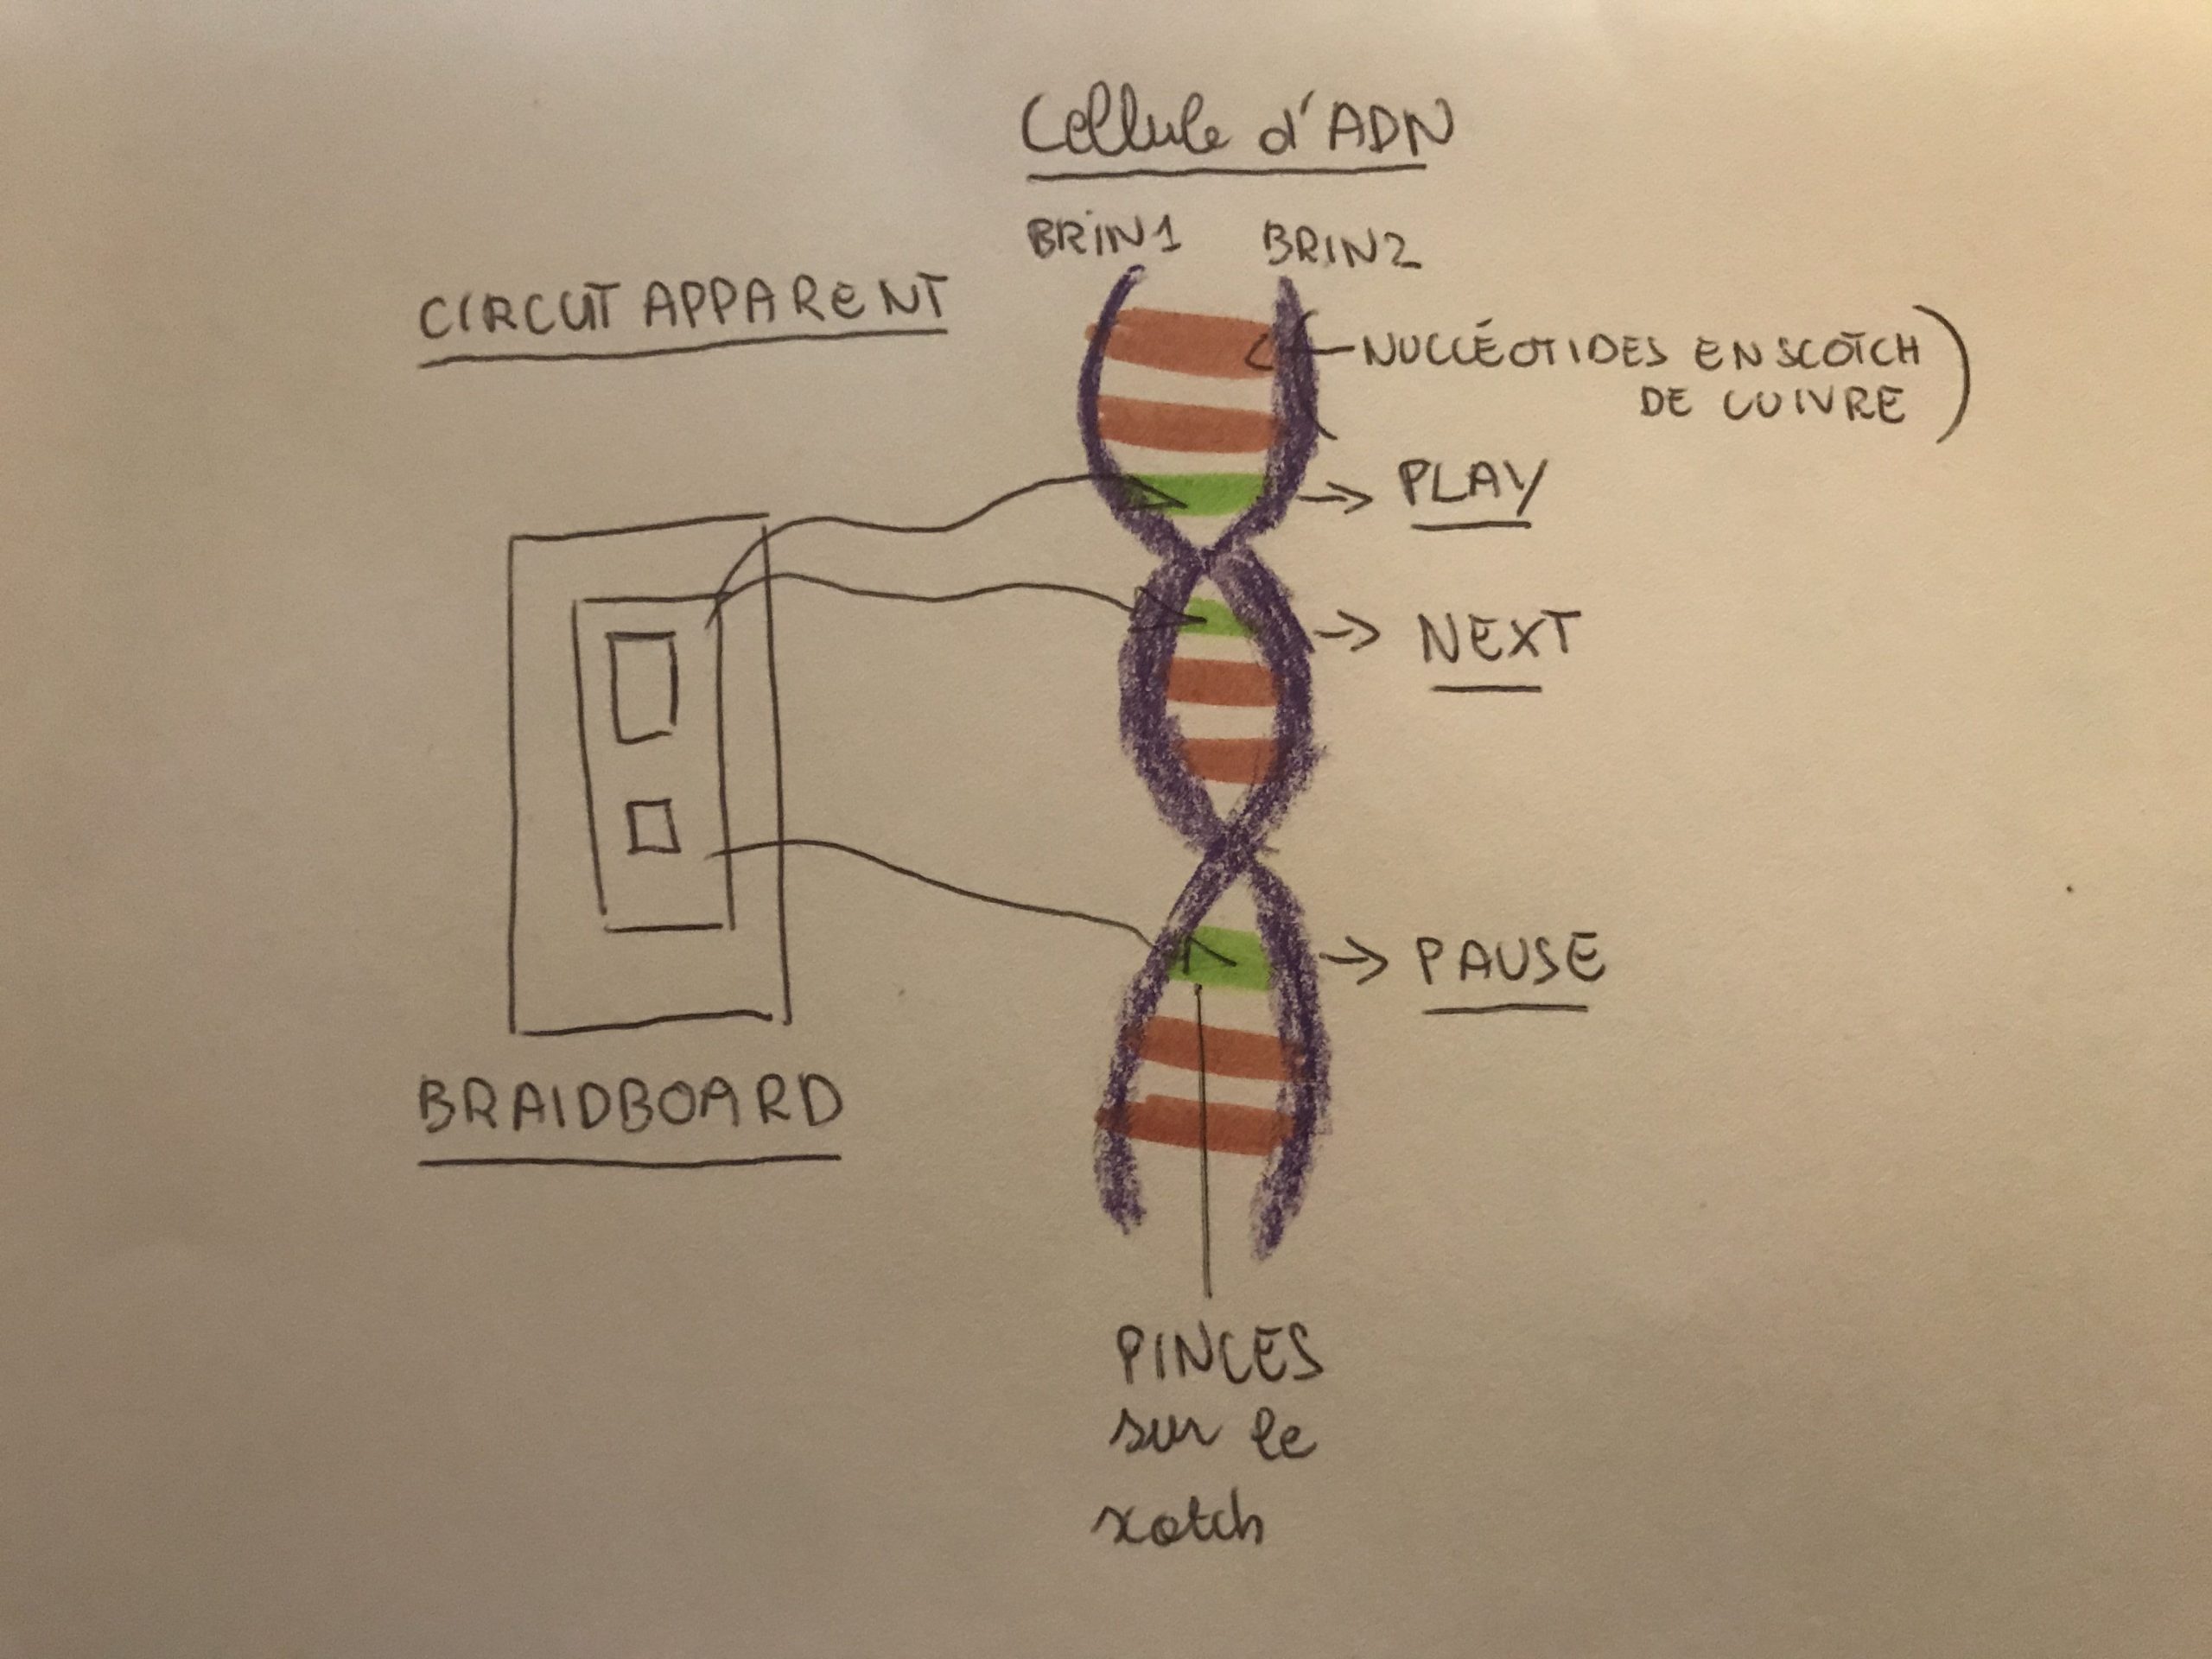 Cellule d'ADN
BRIN1 BRIN2
CIRCUT APPARENT
NUCLÉOTIDES EN SCOTCH
DE CUIVRE
PLAY
NEXT
PAUSE
BRAIDBOARD
PINCES
sur le
scotch